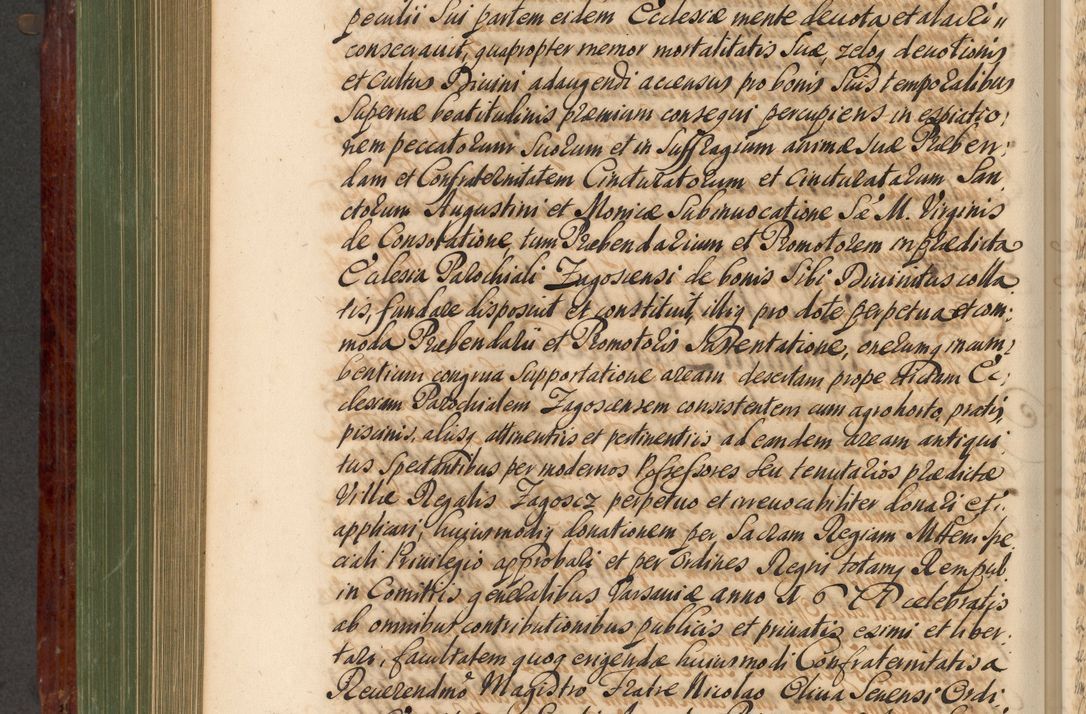 peculii Sui partem eidem Ecclesiæ mente deuota et alacri„
consecrauit, quapropter memor mortalitatis Suæ, zeloq deuotionis
et Cultus Diuini adaugendi accensus pro bonis Suis temporalibus
Supernæ beatitudinis præmium consequi percupiens in expiatio:
nem peccatorum Suorum et in Suffragium animæ Suæ Præben:
dam et Confraternitatem Cincturatorum et Cincturatarum San:
ctorum Augustini et Monicæ Sub inuocatione Sæ M. Virginis
de Consolatione, tum Præbendarium et Promotorem in prædicta
Ecclesia Parochiali Zagoscensi de bonis Sibi Diuinitus colla
tis, fundare disposuit et constituit, illiq pro dote perpetua et com:
moda Præbendarii et Promotoris Sustentatione, onerumq incum:
bentium congrua Supportatione aream desertam prope dictam Ec:
clesiam Parochialem Zagoscensem consistentem cum agro horto, pratis,
piscinis, aliisq attinentiis et pertinentiis ad eandem aream antiqui:
tus Spectantibus per modernos Possessores Seu tenutarios prædictæ
Villæ Regalis Zagoscz perpetuo et irreuocabiliter donari et
applicari, huiusmodiq donationem per Sacram Regiam Mttem spe
ciali Priuilegio approbari et per Ordines Regni totamq Rempub.
in Comitiis generalibus Varsauiæ anno celebratis
ab omnibus contributionibus publicis et priuatis eximi et liber:
tari, facultatem quoq erigendæ huiusmodi Confraternitatis a
Reuerendmo Magistro Fratre Nicolao Oliua Senensi Ordi